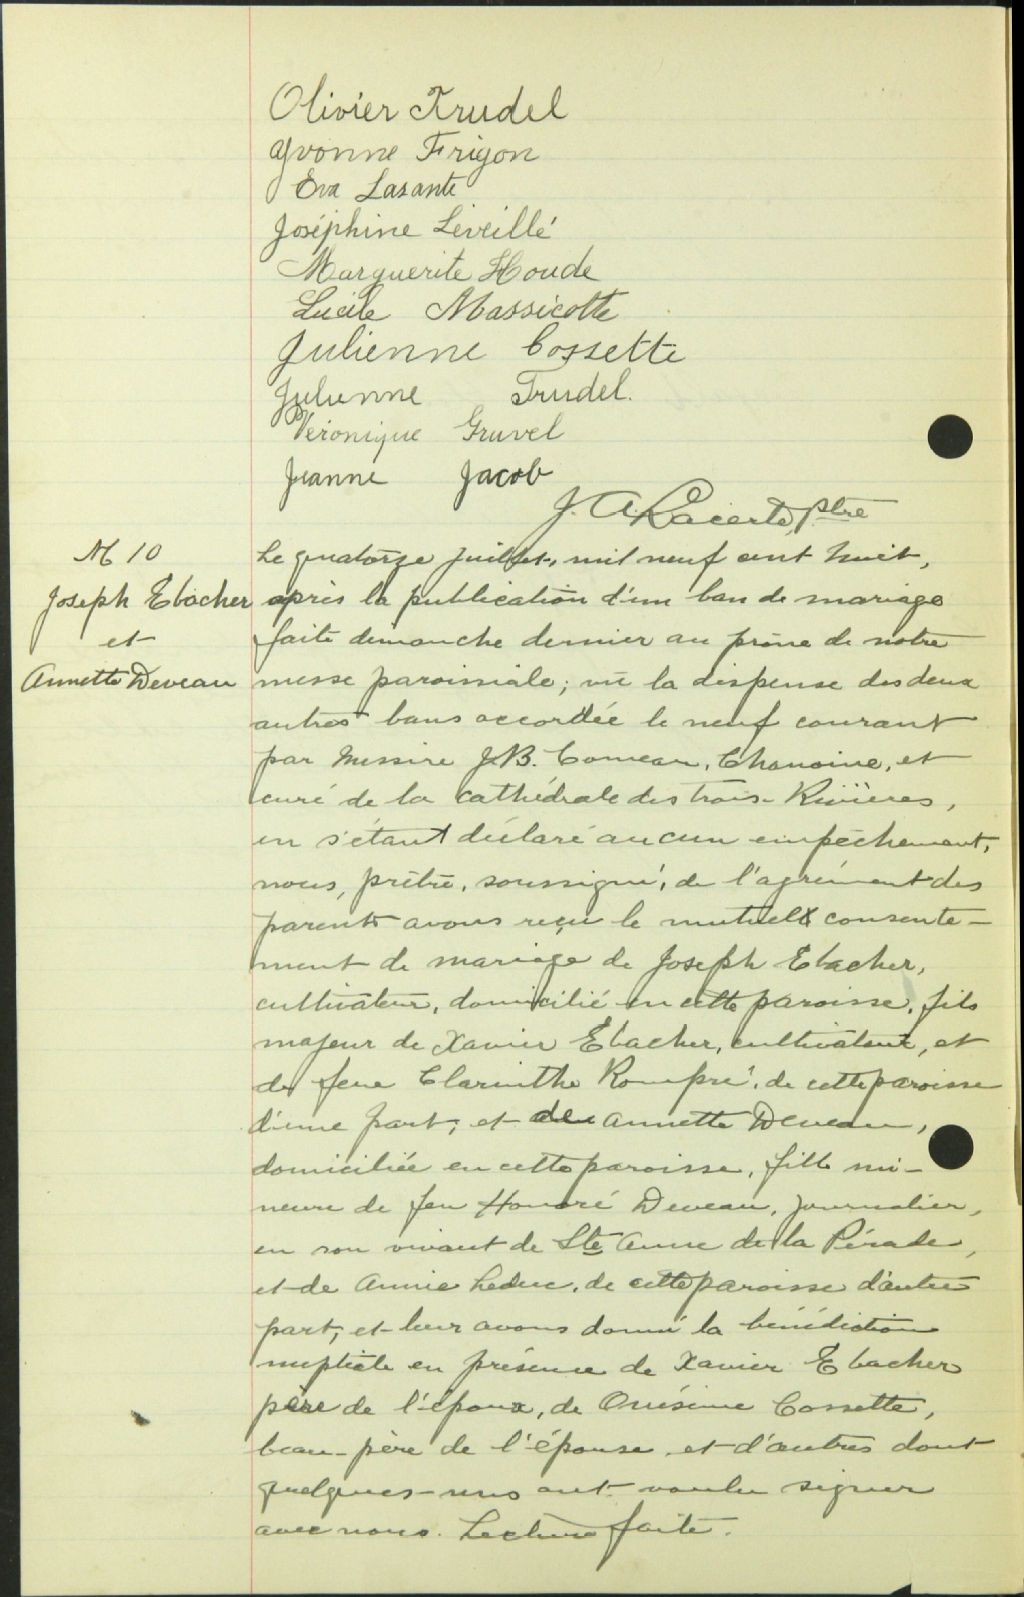 Olivier Trudel
Yvonne Frigon
Eva Lasante
Joséphine Leveillé
Marguerite Houde
Lucile Massicotte
Julienne Cossette
Julienne Trudel.
Véronique Gruvel
Jeanne Jacob
J. A. Lacerte, Ptre
M 10
Joseph Ebacher
et
Annette Deveau
Le quatorze juillet, mil neuf cent huit,
après la publication d'un ban de mariage
faite dimanche dernier au prône de notre
messe paroissiale; vu la dispense des deux
autres bans accordée le neuf courant
par Messire J.B. Comeau, Chanoine, et
curé de la cathédrale des trois-Rivières,
en s'étant déclaré aucun empêchement,
nous, prêtre, soussigné, de l'agrément des
parents avons reçu le mutuel consente-
ment de mariage de Joseph Ebacher,
cultivateur, domicilié en cette paroisse, fils
majeur de Xavier Ebacher, cultivateur, et
de feue Clarinthe Rompré, de cette paroisse
d'une part; et de Annette Deveau,
domiciliée en cette paroisse, fille mi-
neure de feu Honoré Deveau, journalier,
en son vivant de Ste Anne de la Pérade,
et de Annie Leduc, de cette paroisse d'autre
part, et leur avons donné la bénédiction
nuptiale en présence de Xavier Ebacher
père de l'époux, de Onésime Cossette,
beau-père de l'épouse et d'autres dont
quelques-uns ont voulu signer
avec nous. Lecture faite.